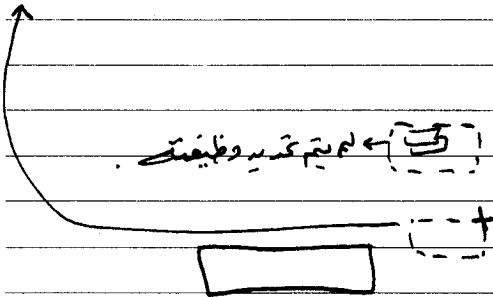 لم يتم تحديد وظيفته .
+